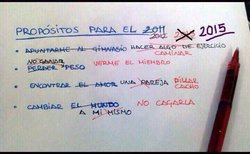 PROPÓSITOS PARA EL 2011 2012 2015
- APUNTARME AL GIMNASIO HACER ALGO DE EJERCICIO
CAMINAR
NO GANAR
- PERDER PESO VERME EL MIEMBRO
- ENCONTRAR EL AMOR UNA PAREJA PILLAR
CACHO
- CAMBIAR EL MUNDO NO CAGARLA
A MÍ MISMO